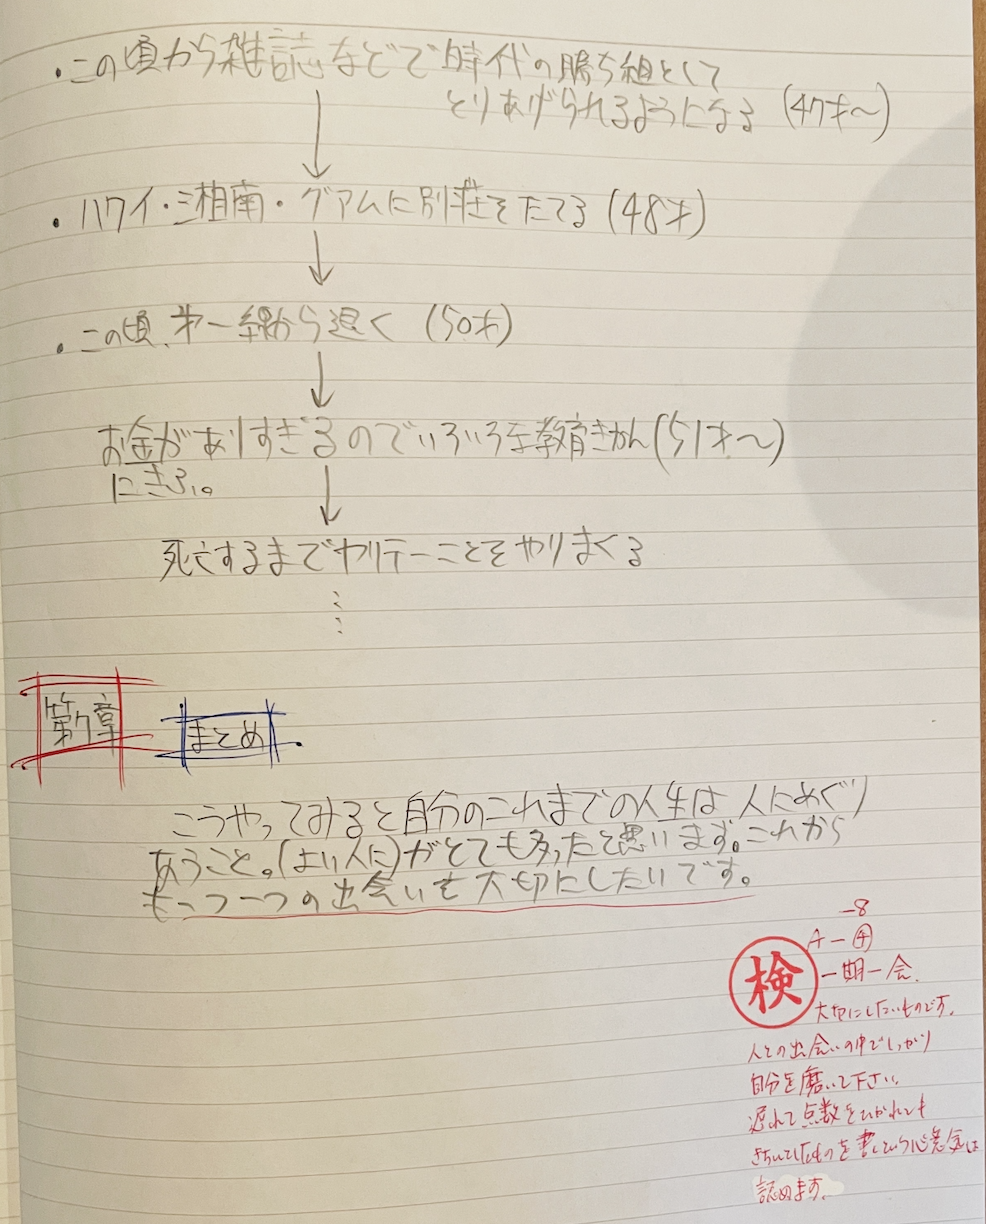 ・この頃から雑誌などで時代の勝ち組として
とりあげられるようになる (47才〜)
・ハワイ・湘南・グアムに別荘をたてる (48才)
・この頃、第一線から退く (50才)
お金がありすぎるのでいろいろな教育きかん (51才〜)
にきふ。
死亡するまでヤリテーことをやりまくる
第7章
まとめ
こうやってみると自分のこれまでの人生は人にめぐり
あうこと。(よい人に)がとても多ったと思います。これから
も一つ一つの出会いを大切にしたいです。
-8
A-④
検
一期一会.
大切にしたいものです.
人との出会いの中でしっかり
自分を磨いて下さい.
遅れて点数をひかれても
きちんとしたものを書くという心意気は
認めます.